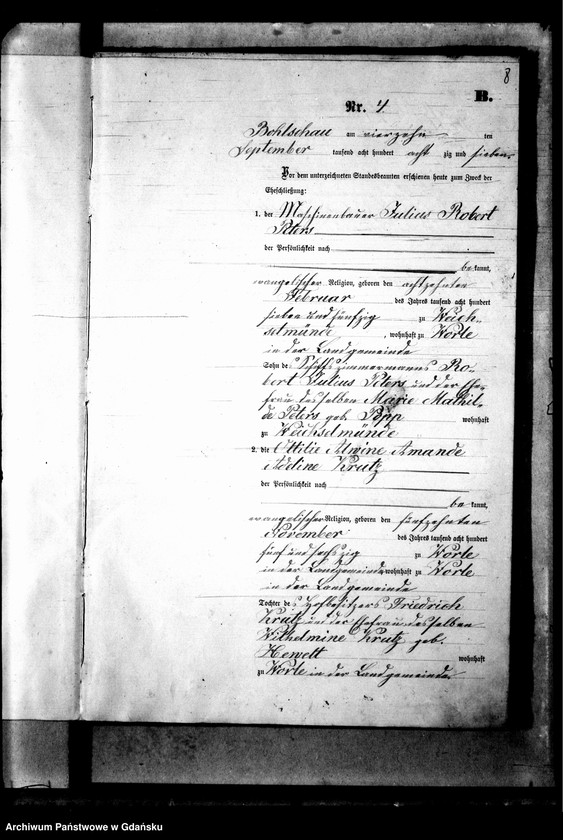 8
B.
Nr. 4
Bohlschau am vierzehn ten
September tausend acht hundert acht zig und sieben
Vor dem unterzeichneten Standesbeamten erschienen heute zum Zweck der
Eheschließung:
1. der Maschinenbauer Julius Robert
Peters
der Persönlichkeit nach
be kannt,
evangelischer Religion, geboren den achtzehnten
Februar des Jahres tausend acht hundert
sieben und fünfzig zu Weich-
selmünde, wohnhaft zu Worle
in der Landgemeinde
Sohn des Schiffszimmermanns Ro-
bert Julius Peters und der Ehe-
frau desselben Marie Mathil-
de Peters geb. Popp wohnhaft
zu Weichselmünde
2. die Ottilie Alwine Amande
Adeline Krutz
der Persönlichkeit nach
be kannt,
evangelischer Religion, geboren den fünfzehnten
November des Jahres tausend acht hundert
fünf und sechszig zu Worle
in der Landgemeinde, wohnhaft zu Worle
in der Landgemeinde
Tochter des Hofbesitzers Friedrich
Krutz und der Ehefrau desselben
Wilhelmine Krutz geb.
Hewelt wohnhaft
zu Worle in der Landgemeinde
Archiwum Państwowe w Gdańsku